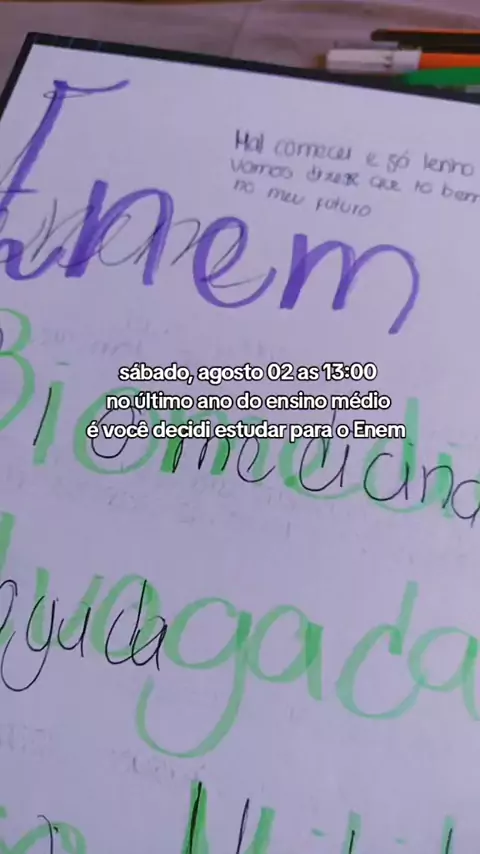 Mal comecei e só tenho
vamos dizer que to bem
no meu futuro
Enem
sábado, agosto 02 as 13:00
no último ano do ensino médio
é você decidi estudar para o Enem
Biomedi
Biomedicina
vogada
ogada